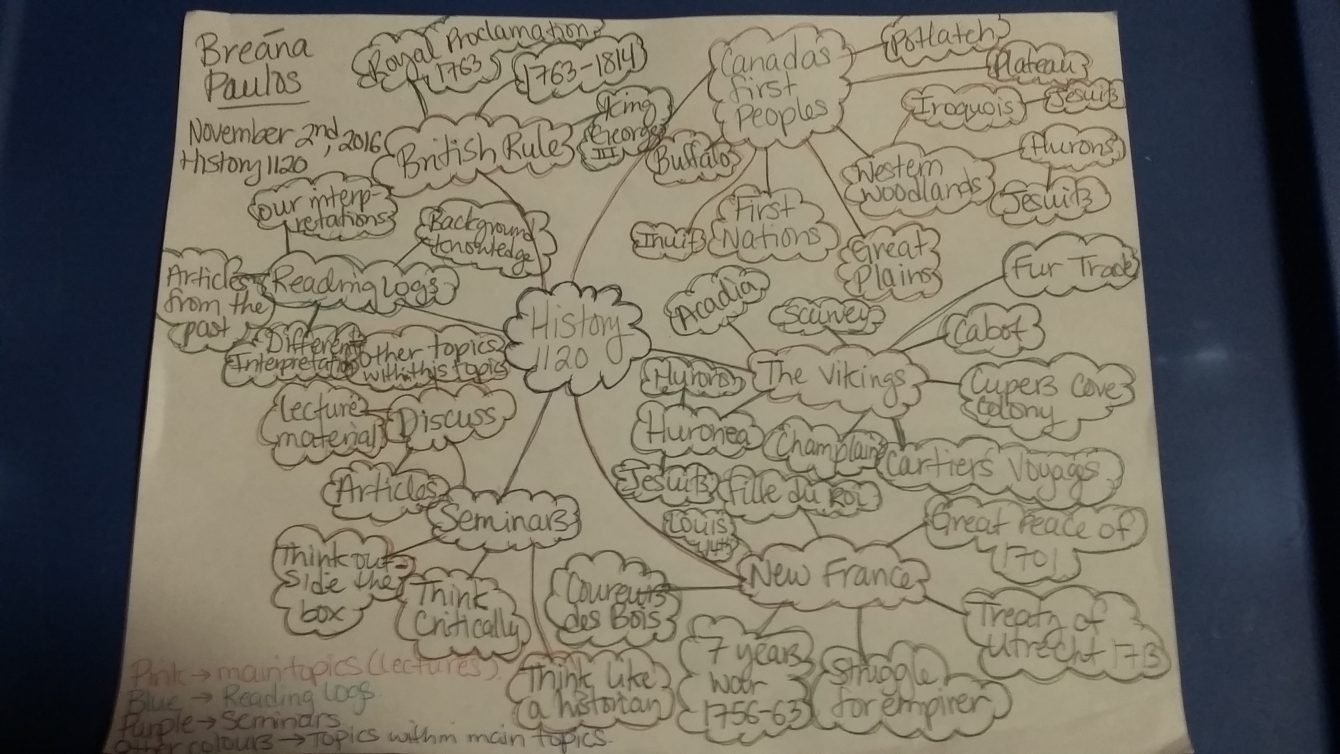 Breana
Paulos
November 2nd, 2016
History 1120
Royal Proclamation
1763
1763-1814
British Rule
King
George
III
Canadas
first
Peoples
Potlatch
Plateau
Iroquois
Jesuits
Hurons
Jesuits
Western
Woodlands
Buffalo
Inuit
First
Nations
Great
Plains
our interp-
retations
Background
knowledge
Reading Logs
Articles
from the
past
Different
Interpretation
Other topics
within this topic
History
1120
Acadia
Scurvey
Fur Trade
Cabot
The Vikings
Cupers Cove
Colony
Hurons
Huronea
Jesuits
Champlain
Cartiers Voyages
Lecture
material
Discuss
Articles
Seminars
Think out-
side the
box
Think
Critically
Think Like
a historian
Fille du Roi
Louis
14th
New France
Great Peace of
1701
Treaty of
Utrecht 1713
Coureurs
des Bois
7 years
war
1756-63
Struggle
for empirer
Pink → main topics (lectures).
Blue → Reading Logs.
Purple → Seminars.
Other colours → Topics within main topics.